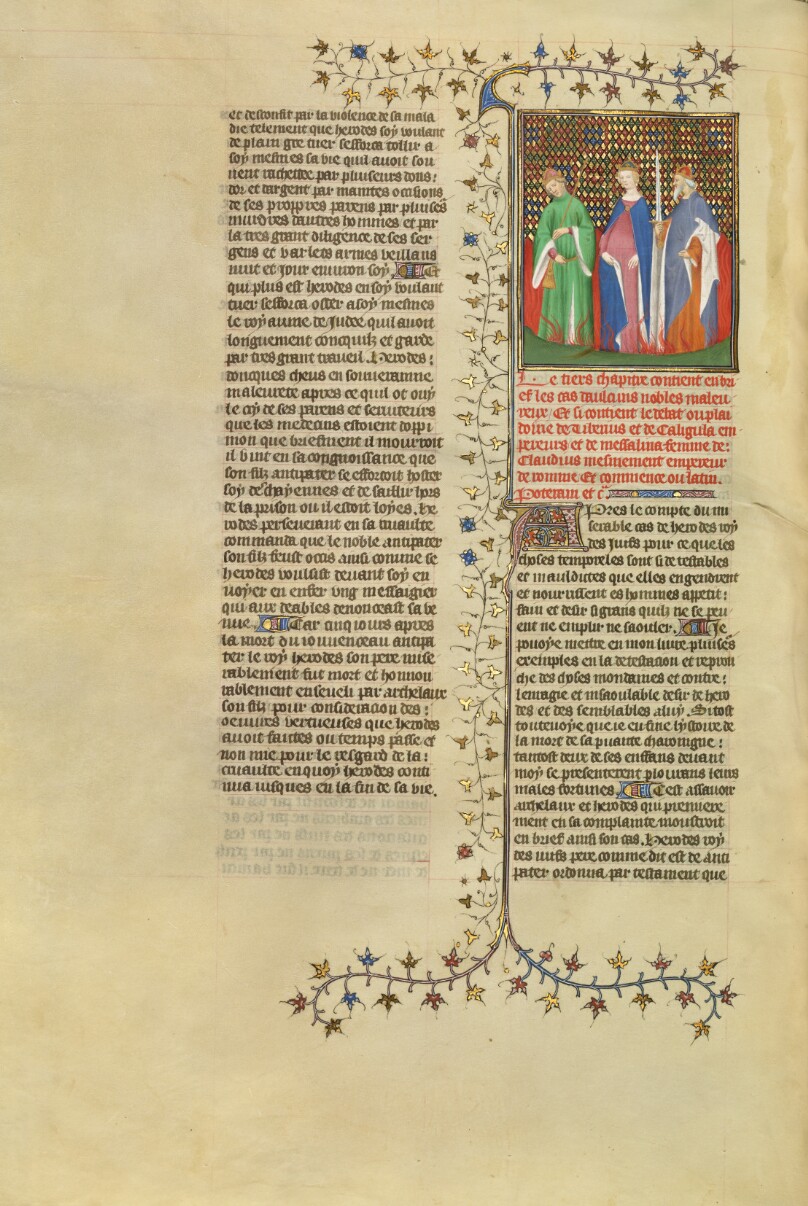 et desconfit par la violence de sa mala
die telement que herodes soy voulant
de plain gre tuer sefforca tollir a
soy mesmes sa vie quil avoit sou
uent rachettee par pluiseurs dons:
dor et dargent par maintes occisions
de ses proppres parens par pluisē
murdres dautres hommes et par
la tres grant diligence de ses ser
gens et varlets armes veillans
nuit et jour environ soy. Et
qui plus est herodes en soy voulant
tuer sefforca oster a soy mesmes
le royaume de Judee quil avoit
longuement conequis et garde
par tres grant traveil. Herodes:
doncques cheus en souveraine
maleurete apres ce quil ot ouy
le cry de ses parens et serviteurs
que les medecins estoient doppi
mon que briefment il mourroit
il vint en sa congnoissance que
son filz antipater se efforcoit hoster
soy de chayennes et de saillir hors
de la prison ou il estoit loyes. he
rodes perseverant en sa cruaulte
commanda que le noble antipater
son filz feust occis ainsi comme se
herodes voulsist devant soy en
voyer en enfer vng messaigier
qui aux deables denoncast sa ve
nue. Car cinq iours apres
la mort du iouuenceau antipa
ter le roy herodes son pere mise
rablement fut mort et honnou
rablement enseveli par archelaus
son filz pour consideracion des:
oeuures vertueuses que herodes
avoit faittes ou temps passe et
non mie pour le resgard de la:
cruaulte en quoy herodes conti
nua iusques en la fin de sa vie.
Le tiers chapitre contient en bri
ef les cas daulcuns nobles maleu
reux Et si contient le debat ou plai
doirie de tiberius et de Caligula em
pereurs et de messalina femme de:
Claudius mesmement empereur
de romme Et commence ou latin.
Poteram et c̄
Apres le compte du mi
serable cas de herodes roy
des Juifs pour ce que les
choses temporeles sont si detestables
et mauldictes que elles engendrent
et nourrissent es hommes appetit:
faim et desir si grans quilz ne se peu
ent ne emplir ne saouler. Je
pouoye mettre en mon livre pluisēs
exemples en la detestacion et reprou
che des choses mondaines et contre:
lenragie et insaoulable desir de hero
des et des semblables a luy. Si tost
toutevoye que ie eu fine lystoire de
la mort de sa puante charongne:
tantost deux de ses enffans devant
moy se presenterent plourans leurs
males fortunes. Cest assavoir
archelaux et herodes qui premiere
ment en sa complainte moustroit
en brief ainsi son cas. Herodes roy
des iuifs pere comme dit est de anti
pater ordonna par testament que